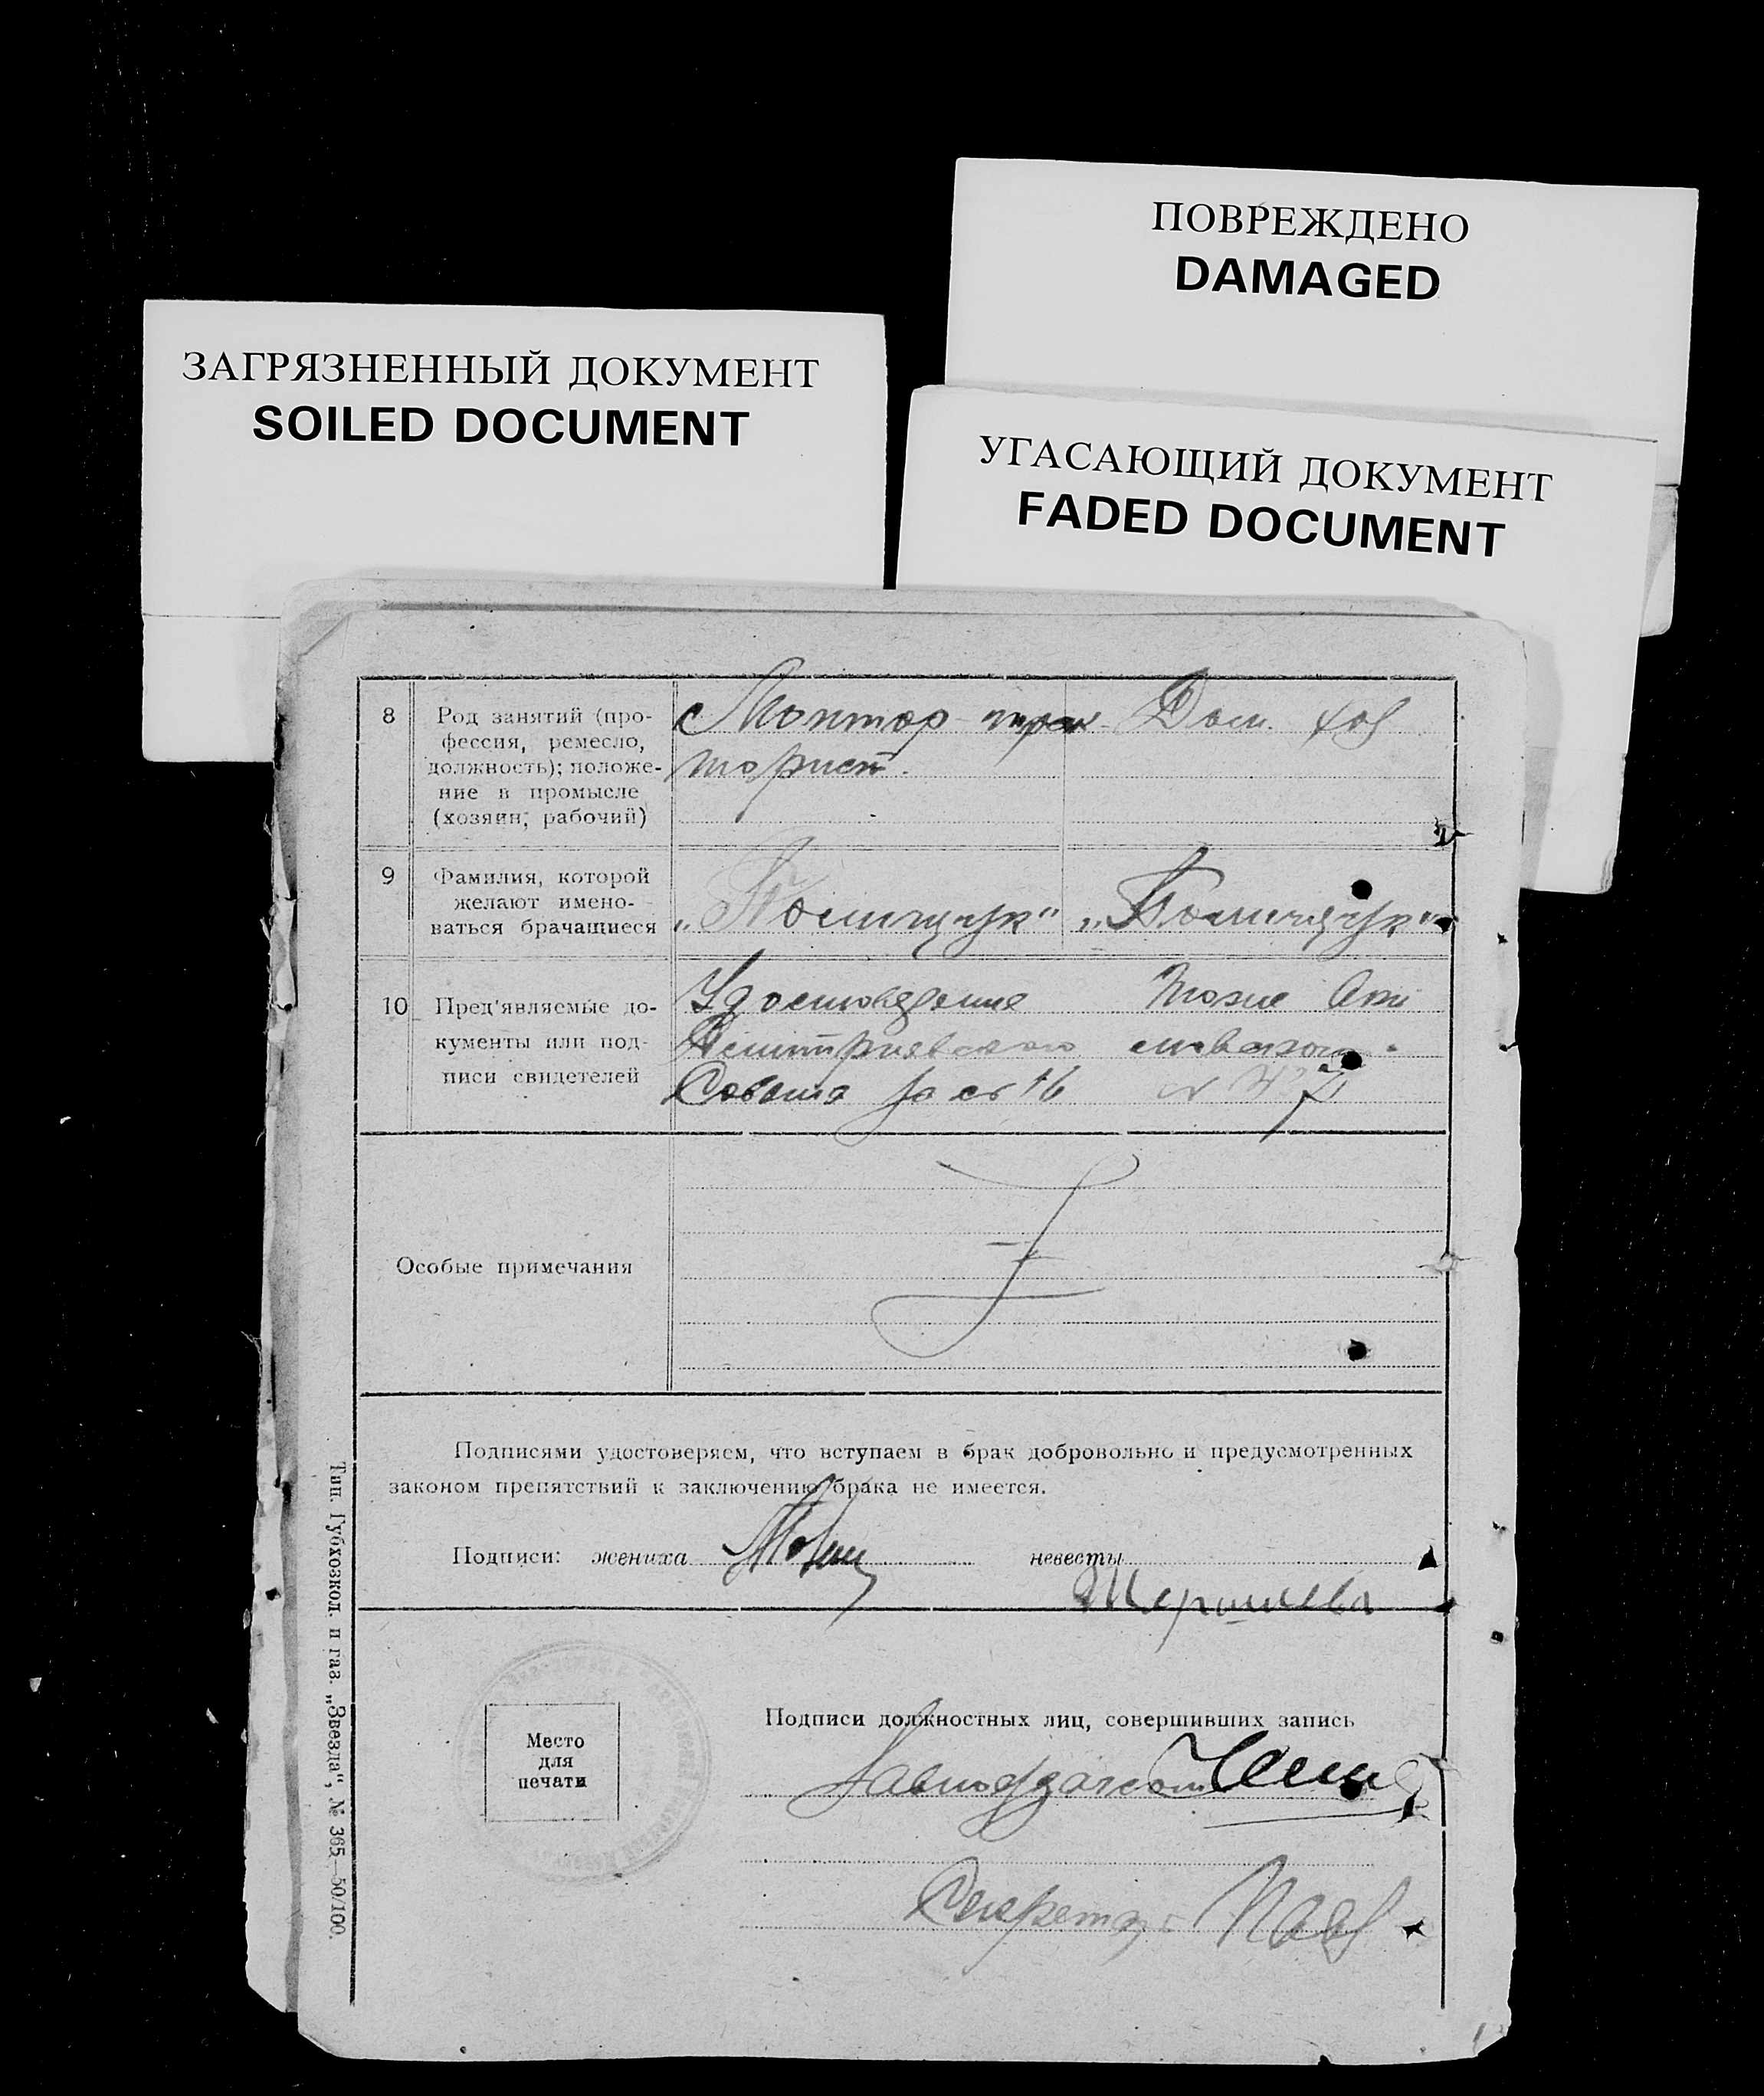 ПОВРЕЖДЕНО
DAMAGED
ЗАГРЯЗНЕННЫЙ ДОКУМЕНТ
SOILED DOCUMENT
УГАСАЮЩИЙ ДОКУМЕНТ
FADED DOCUMENT
8 Род занятий (про-
фессия, ремесло,
должность); положе-
ние в промысле
(хозяин, рабочий)
Монтор трак
торист.
Дом. хоз
9 Фамилия, которой
желают имено-
ваться брачащиеся
10 Пред'являемые до-
кументы или под-
писи свидетелей
Удостоверение
Совета за
Тоже
Особые примечания
Подписями удостоверяем, что вступаем в брак добровольно и предусмотренных
законом препятствий к заключению брака не имеется.
Подписи: жениха невесты
Место
для
печати
Подписи должностных лиц, совершивших запись
Секретарь
Тип. Губхозкол. п газ. „Звезда", № 365—50/100.